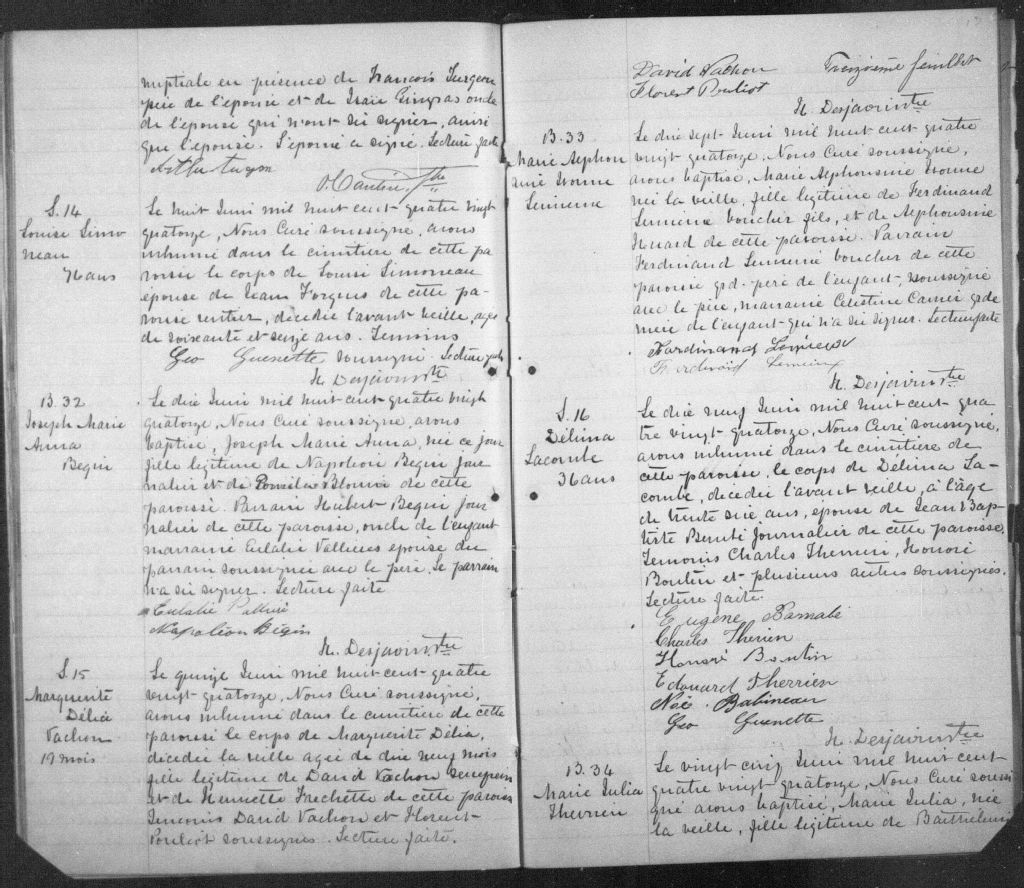 nuptiale en présence de Francois Turgeon
père de l'épouse et de Isaïe Gingras oncle
de l'épouse qui n'ont su signer, ainsi
que l'épouse. L'époux a signé. Lecture faite
Arthur
Ptre
S. 14
Louise Simo
neau
76 ans
Le huit Juin mil huit cent quatre vingt
quatorze, Nous Curé soussigné, avons
inhumé dans le cimetière de cette pa
roisse le corps de Louise Simoneau
épouse de Jean Forgues de cette pa-
roisse rentier, décédée l'avant veille, agée
de soixante et seize ans. Témoins
Geo Guenette soussigné. Lecture faite
N. Desjavin Ptre
B. 32
Joseph Marie
Anna
Begin
Le dix Juin mil huit cent quatre vingt
quatorze, Nous Curé soussigné avons
baptisé, Joseph Marie Anna, né ce jour
fille légitime de Napoléon Begin Jour
nalier et de Blouin de cette
paroisse. Parrain Hubert Begin jour
nalier de cette paroisse, oncle de l'enfant
marraine Eulalie Vallières épouse du
parrain soussignée avec le père. Le parrain
n'a su signer. Lecture faite
Eulalie
Napoléon Bégin
N. Desjavin Ptre
S. 15
Marguerite
Délia
Vachon
19 mois
Le quinze Juin mil huit cent quatre
vingt quatorze, Nous Curé soussigné,
avons inhumé dans le cimetière de cette
paroisse le corps de Marguerite Délia,
décédée la veille agée de dix neuf mois
fille légitime de David Vachon
et de Henriette Frechette de cette paroisse
Temoins David Vachon et Florent
Pouliot soussignés. Lecture faite.
David Vachon
Treizième feuillet
Florent Pouliot
N. Desjavin Ptre
B. 33
Marie Alphon
sine Ivonne
Lemieux
Le dix sept Juin mil huit cent quatre
vingt quatorze, Nous Curé soussigné,
avons baptisé, Marie Alphonsine Ivonne
née la veille, fille légitime de Ferdinand
Lemieux boucher fils, et de Alphonsine
Huard de cette paroisse. Parrain
Ferdinand Lemieux boucher de cette
paroisse grd. père de l'enfant, soussigné
avec le père, marraine Celestine Carrier grde
mère de l'enfant qui n'a su signer. Lecture faite
Ferdinand Lemieux
Ferdinand Lemieux
N. Desjavin Ptre
S. 16
Délima
Lacombe
36 ans
Le dix neuf Juin mil huit cent qua
tre vingt quatorze, Nous Curé soussigné,
avons inhumé dans le cimetière de
cette paroisse, le corps de Délima La-
combe, décédée l'avant veille, à l'âge
de trente six ans, épouse de Jean Bap
tiste journalier de cette paroisse.
Temoins Charles Therrien, Honoré
Boutin et plusieurs autres soussignés.
Lecture faite
Eugène Barnabé
Charles Therien
Honoré Boutin
Edouard Therrien
Noé Babineau
Geo Guenette
N. Desjavin Ptre
B. 34
Marie Julia
Therrien
Le vingt cinq Juin mil huit cent
quatre vingt quatorze, Nous Curé soussi
gné avons baptisé, Marie Julia, née
la veille, fille légitime de Barthelemi